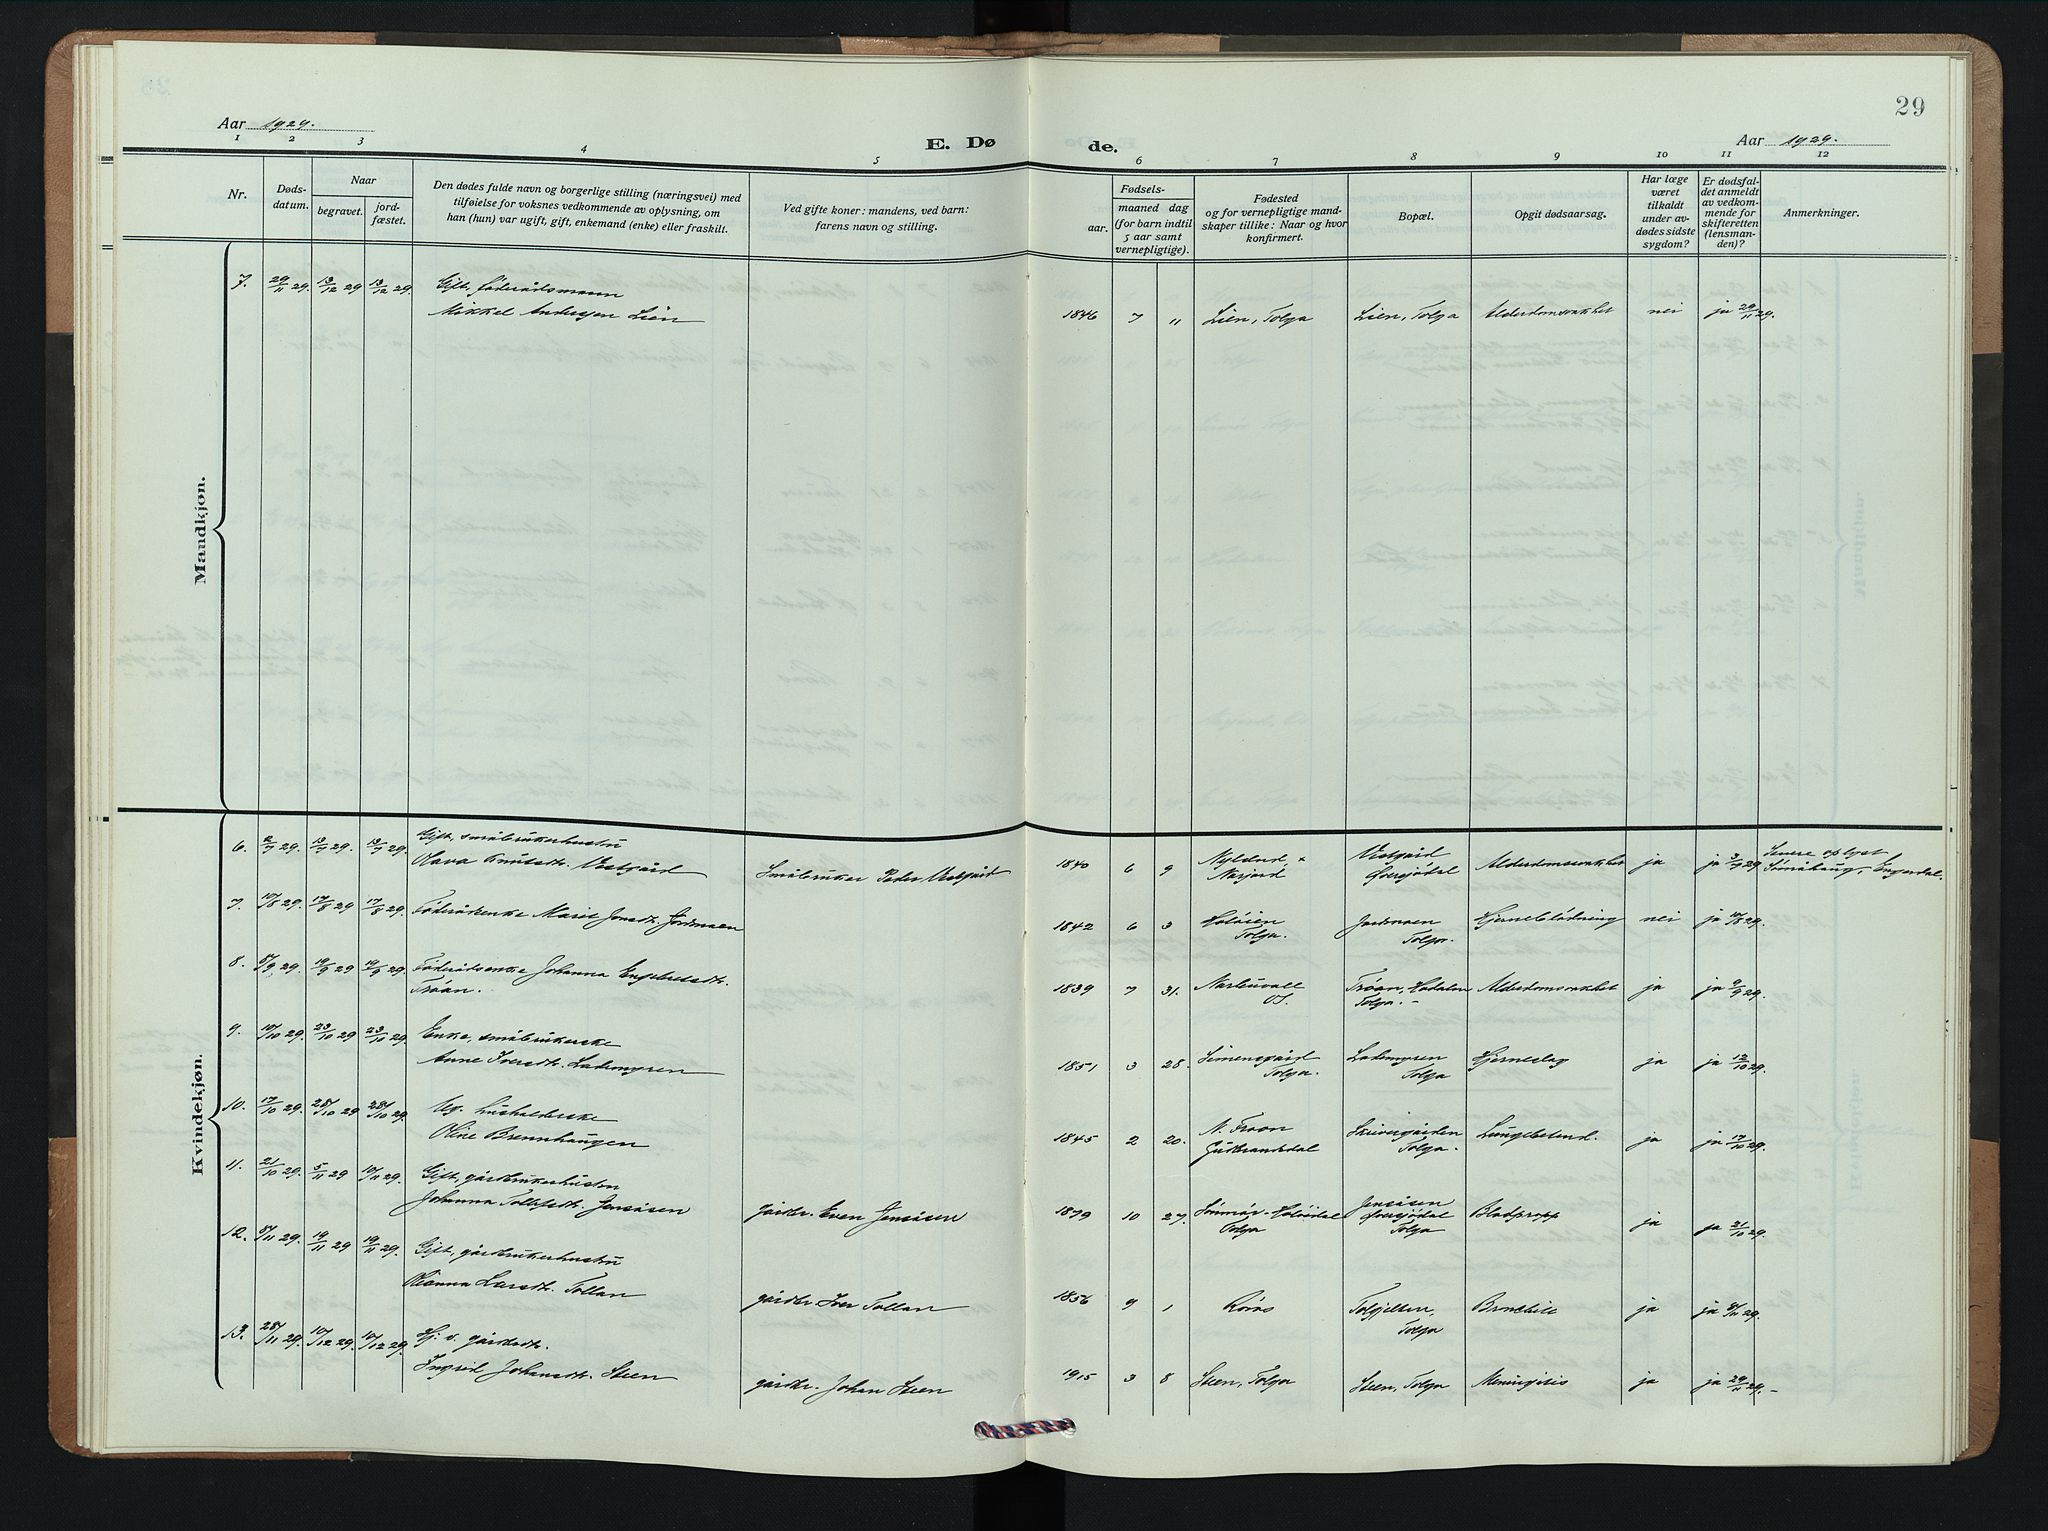 29
Aar 1929.
E. Dø
de.
Aar 1929.
1 2 3 4 5 6 7 8 9 10 11 12
Nr.
Døds-
datum.
Naar
begravet.
jord-
fæstet.
Den dødes fulde navn og borgerlige stilling (næringsvei) med
tilføielse for voksnes vedkommende av oplysning, om
han (hun) var ugift, gift, enkemand (enke) eller fraskilt.
Ved gifte koner: mandens, ved barn:
farens navn og stilling.
Fødsels-
aar.
maaned dag
(for barn indtil
5 aar samt
vernepligtige).
Fødested
og for vernepligtige mand-
skaper tillike: Naar og hvor
konfirmert.
Bopæl.
Opgit dødsaarsag.
Har læge
været
tilkaldt
under av-
dødes sidste
sygdom?
Er dødsfal-
det anmeldt
av vedkom-
mende for
skifteretten
(lensman-
den)?
Anmerkninger.
Mandkjøn.
7. 29/11 29. 13/12 29 13/12 29. Gift, føderådsmann
Mikkel Anderssen Lien 1846 7 11 Lien, Tolga Lien, Tolga Alderdomssvakhet nei ja 29/11 29.
Kvindekjøn.
6. 2/7 29. 13/7 29. 13/7 29. Gift, småbrukerhustru
Olava Knutsdtr. Vestgård Småbruker Peder Vestgård 1840 6 9 Nyland, Narjord Vestgård Øversjødal Alderdomssvakhet ja ja 3/7 29. Senere oplyst
Engerdal.
7. 10/8 29. 17/8 29 17/8 29. Føderådsenke Marit Jonsdtr. Jordmoen 1842 6 3 Holøien Tolga. Jordmoen Tolga. Hjerneblødning nei ja 10/8 29.
8. 8/9 29. 19/9 29 19/9 29. Føderådsenke Johanna Engebretsdtr.
Trøan. 1839 7 31. Narbuvoll Os. Trøan, Hodalen Tolga. - Alderdomssvakhet ja ja 9/9 29.
9. 10/10 29. 23/10 29 23/10 29. Enke, småbrukerske
Anne Iversdtr. Lademyren 1851 3 28. Simensgård Tolga. Lademyren Tolga Hjerneslag ja ja 12/10 29.
10. 17/10 29. 28/10 29 28/10 29. Ug. husholderske
Oline Brennhaugen 1845 2 20. N. Fron Gudbrandsdal Skrivergården Tolga. Lungebetend. ja ja 17/10 29.
11. 21/10 29. 5/11 29 10/11 29. Gift, gårdbrukerhustru
Johanna Tollefsdtr. Jensåsen gårdbr. Even Jensåsen 1879 10 27. Holøidal Tolga Jensåsen Øversjødal Tolga Blodpropp ja ja 21/10 29.
12. 8/11 29. 19/11 29 19/11 29. Gift, gårdbrukerhustru
Olianna Larsdtr. Tollan gårdbr. Iver Tollan 1856 9 1 Røros Tolgjelten, Tolga Bronchitt ja ja 9/11 29.
13. 28/11 29. 10/12 29. 10/12 29. Hj. v. gårdsdtr.
Ingrid Johansdtr. Steen gårdbr. Johan Steen 1915 3 8 Steen, Tolga Steen, Tolga Meningitis ja ja 29/11 29. -